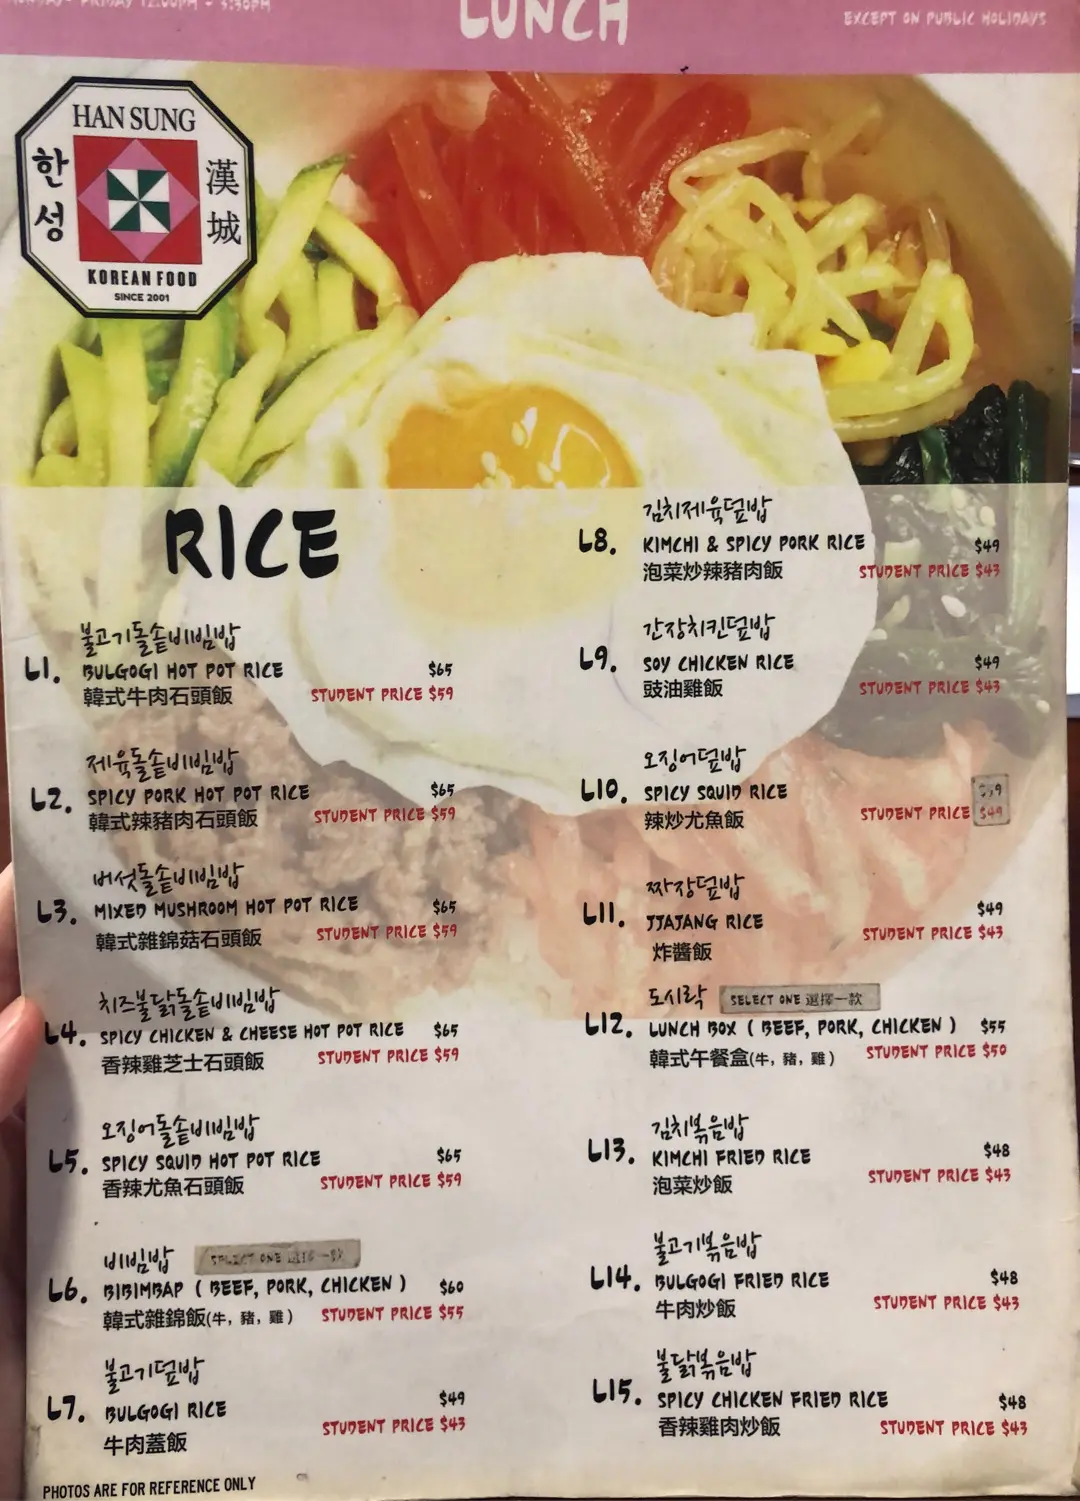 MONDAY - FRIDAY 12:00PM - 5:30PM
LUNCH
EXCEPT ON PUBLIC HOLIDAYS
HAN SUNG
한성
漢城
KOREAN FOOD
SINCE 2001
RICE
불고기돌솥비빔밥
L1. BULGOGI HOT POT RICE $65
韓式牛肉石頭飯 STUDENT PRICE $59
제육돌솥비빔밥
L2. SPICY PORK HOT POT RICE $65
韓式辣豬肉石頭飯 STUDENT PRICE $59
버섯돌솥비빔밥
L3. MIXED MUSHROOM HOT POT RICE $65
韓式雜錦菇石頭飯 STUDENT PRICE $59
치즈불닭돌솥비빔밥
L4. SPICY CHICKEN & CHEESE HOT POT RICE $65
香辣雞芝士石頭飯 STUDENT PRICE $59
오징어돌솥비빔밥
L5. SPICY SQUID HOT POT RICE $65
香辣尤魚石頭飯 STUDENT PRICE $59
비빔밥 SELECT ONE
L6. BIBIMBAP ( BEEF, PORK, CHICKEN ) $60
韓式雜錦飯(牛, 豬, 雞) STUDENT PRICE $55
불고기덮밥
L7. BULGOGI RICE $49
牛肉蓋飯 STUDENT PRICE $43
김치제육덮밥
L8. KIMCHI & SPICY PORK RICE $49
泡菜炒辣豬肉飯 STUDENT PRICE $43
간장치킨덮밥
L9. SOY CHICKEN RICE $49
豉油雞飯 STUDENT PRICE $43
오징어덮밥
L10. SPICY SQUID RICE
辣炒尤魚飯 STUDENT PRICE $49
짜장덮밥
L11. JJAJANG RICE $49
炸醬飯 STUDENT PRICE $43
도시락 SELECT ONE 選擇一款
L12. LUNCH BOX ( BEEF, PORK, CHICKEN ) $55
韓式午餐盒(牛, 豬, 雞) STUDENT PRICE $50
김치볶음밥
L13. KIMCHI FRIED RICE $48
泡菜炒飯 STUDENT PRICE $43
불고기볶음밥
L14. BULGOGI FRIED RICE $48
牛肉炒飯 STUDENT PRICE $43
불닭볶음밥
L15. SPICY CHICKEN FRIED RICE $48
香辣雞肉炒飯 STUDENT PRICE $43
PHOTOS ARE FOR REFERENCE ONLY